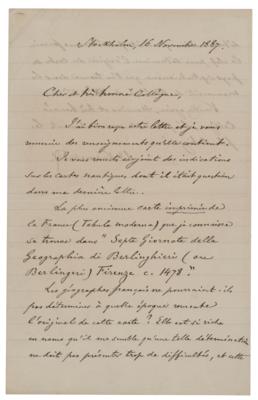 Stockholm, 16 Novembre 1887.
Cher et très honoré Collègue,
J'ai bien reçu votre lettre et je vous
remercie des renseignements qu'elle contient.
Je vous remets ci-joint des indications
sur les cartes nautiques dont il était question
dans ma dernière lettre.
La plus ancienne carte imprimée de
la France (Tabula moderna) que je connaisse
se trouve dans "Septe Giornate della
Geographia di Berlinghieris (ore
Berlingeri) Firenze c. 1478."
Les géographes français ne pourraient-ils
pas déterminer à quelle époque remonte
l'original de cette carte? Elle est si riche
en noms qu'il me semble qu'une telle détermination
ne doit pas présenter trop de difficultés, et cette